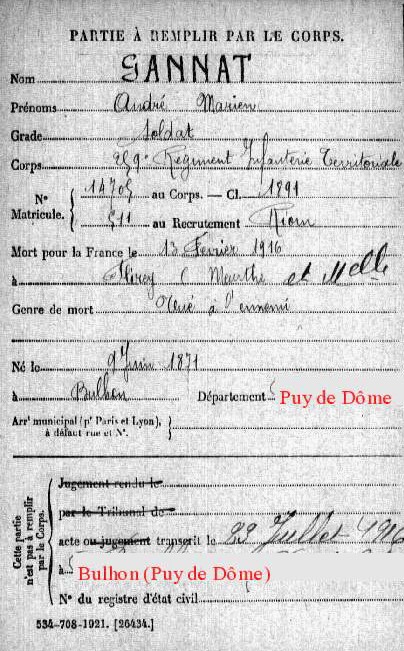 PARTIE À REMPLIR PAR LE CORPS.
Nom GANNAT
Prénoms André Marien
Grade Soldat
Corps Régiment Infanterie Territoriale
Nº Matricule. { 14705 au Corps. — Cl. 1891
511 au Recrutement Riom
Mort pour la France le 13 Février 1916
à Flirey Meurthe et Melle
Genre de mort Tué à l'ennemi
Né le 9 Juin 1871
à Bulhon Département Puy de Dôme
Arrᵗ municipal (pʳ Paris et Lyon), }
à défaut rue et Nº.
Cette partie
n'est pas à remplir
par le Corps.
Jugement rendu le
par le Tribunal de
acte ou jugement transcrit le 22 Juillet 1916
à Bulhon (Puy de Dôme)
Nº du registre d'état civil
534-708-1921. [26434.]